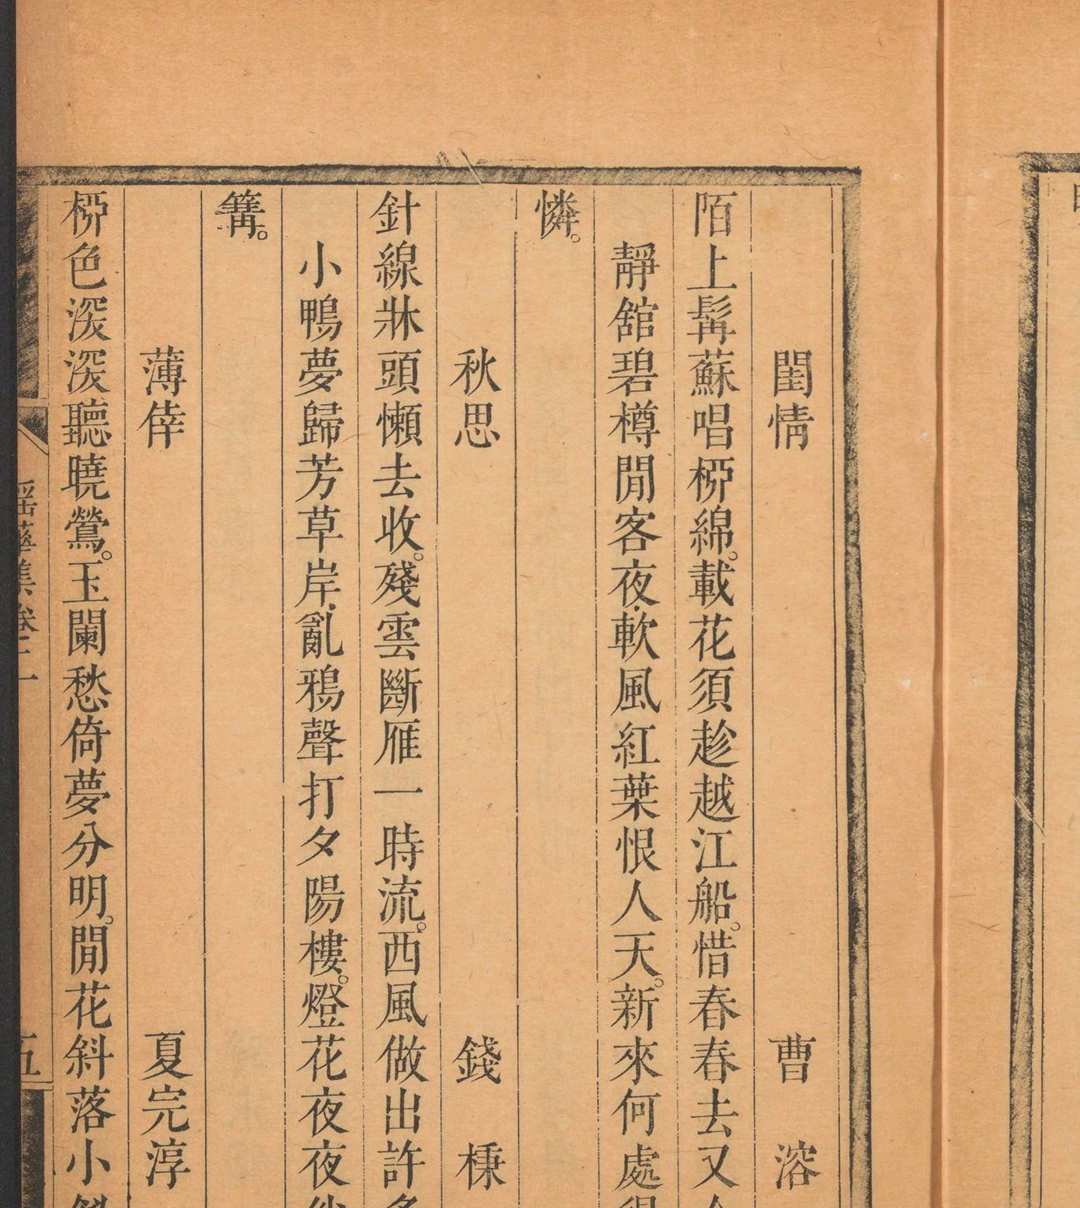 閨情 曹溶
陌上髯蘇唱桺綿。載花須趁越江船。惜春春去又
靜舘碧樽閒客夜.軟風紅葉恨人天。新來何處
憐。
秋思 錢棅
針線牀頭懶去收。殘雲斷雁一時流。西風做出許
小鴨夢歸芳草岸.亂鴉聲打夕陽樓。燈花夜夜
篝。
薄倖 夏完淳
桺色深深聽曉鶯。玉闌愁倚夢分明。閒花斜落小
瑶華集卷二
五